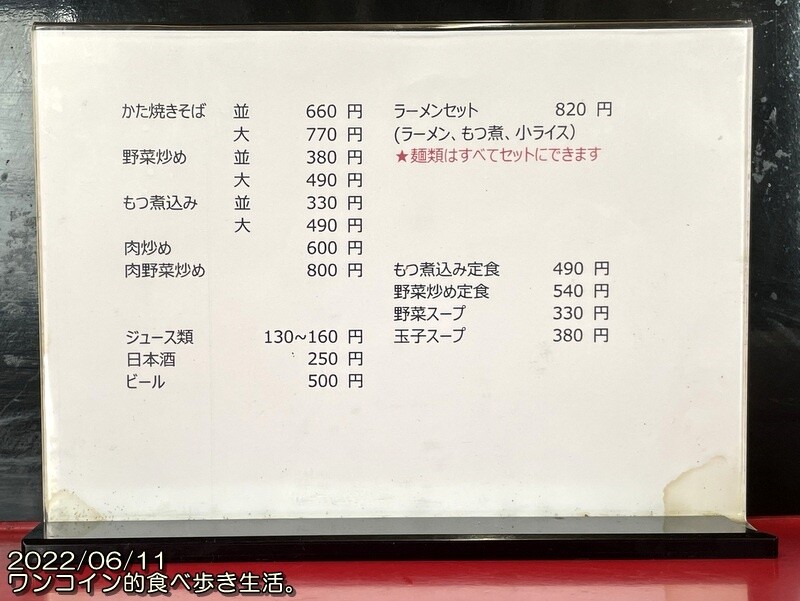 かた焼きそば 並 660 円
大 770 円
野菜炒め 並 380 円
大 490 円
もつ煮込み 並 330 円
大 490 円
肉炒め 600 円
肉野菜炒め 800 円
ジュース類 130~160 円
日本酒 250 円
ビール 500 円
ラーメンセット 820 円
(ラーメン、もつ煮、小ライス)
★麺類はすべてセットにできます
もつ煮込み定食 490 円
野菜炒め定食 540 円
野菜スープ 330 円
玉子スープ 380 円
2022/06/11
ワンコイン的食べ歩き生活。